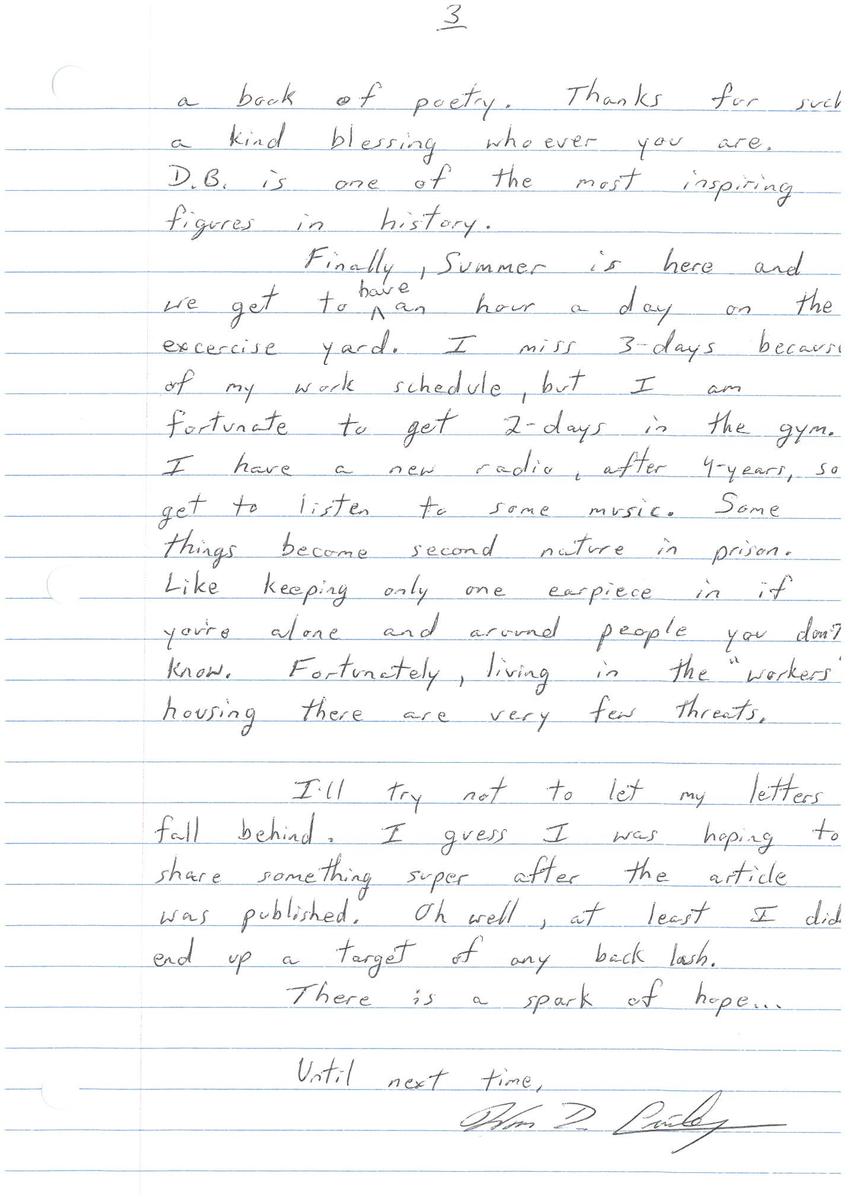 3
a book of poetry. Thanks for such
a kind blessing who ever you are.
D.B. is one of the most inspiring
figures in history.
Finally, Summer is here and
we get to have an hour a day on the
excercise yard. I miss 3-days because
of my work schedule, but I am
fortunate to get 2-days in the gym.
I have a new radio, after 4-years, so
get to listen to some music. Some
things become second nature in prison.
Like keeping only one earpiece in if
you're alone and around people you don't
know. Fortunately, living in the "workers"
housing there are very few threats.
I'll try not to let my letters
fall behind. I guess I was hoping to
share something super after the article
was published. Oh well, at least I did
end up a target of any back lash.
There is a spark of hope...
Until next time,
Wm D.